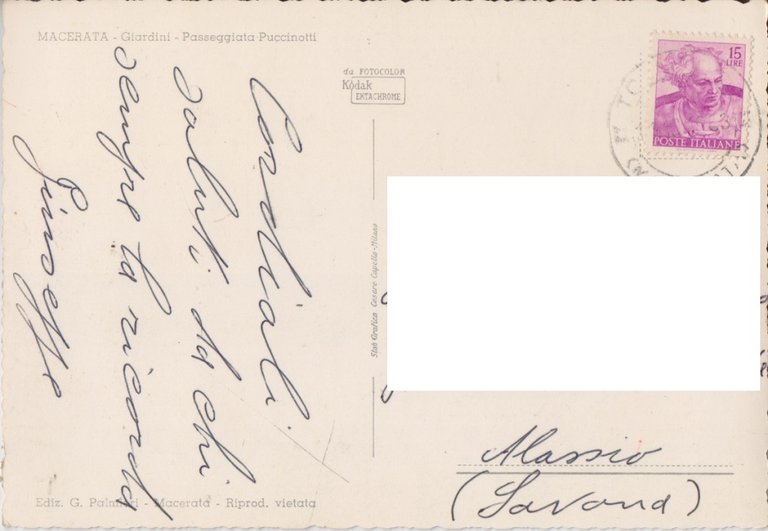 MACERATA - Giardini - Passeggiata Puccinotti
da FOTOCOLOR
Kodak
EKTACHROME
15
LIRE
POSTE ITALIANE
Cordiali
saluti da chi
sempre la ricorda
Giuseppe
Stab Grafico Cesare Capello-Milano
Alassio
(Savona)
Ediz. G. Palmieri - Macerata - Riprod. vietata